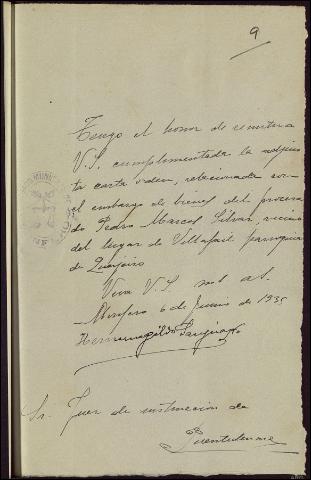 9
Tengo el honor de remitir a
V.S. cumplimentada la adjun
ta carta orden, relacionada con
el embargo de bienes del procesa
do Pedro Marcos Silvar, vecino
del lugar de parroquia
de
Viva V.S. mil a
6 de Junio de 193
Hermenegildo
Sr. Juez de instrucción de
Puentedeume